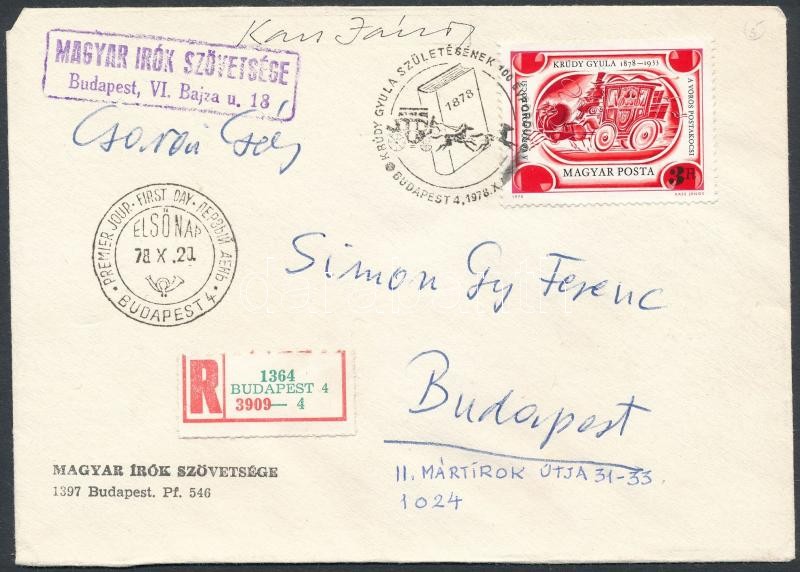 Kass János
MAGYAR IRÓK SZÖVETSÉGE
Budapest, VI. Bajza u. 18
KRÚDY GYULA SZÜLETÉSÉNEK 100
1878
BUDAPEST 4, 1978.X.
KRÚDY GYULA 1878–1933
A VÖRÖS POSTAKOCSI
MAGYAR POSTA
3 Ft
1978 KASS JÁNOS
PREMIER JOUR · FIRST DAY · ПЕРВЫЙ ДЕНЬ ·
ELSŐ NAP
78 X .20.
BUDAPEST 4
Simon Gy Ferenc
R
1364
BUDAPEST 4
3909— 4
Budapest
II. MÁRTÍROK ÚTJA 31-33.
1024
MAGYAR ÍRÓK SZÖVETSÉGE
1397 Budapest. Pf. 546